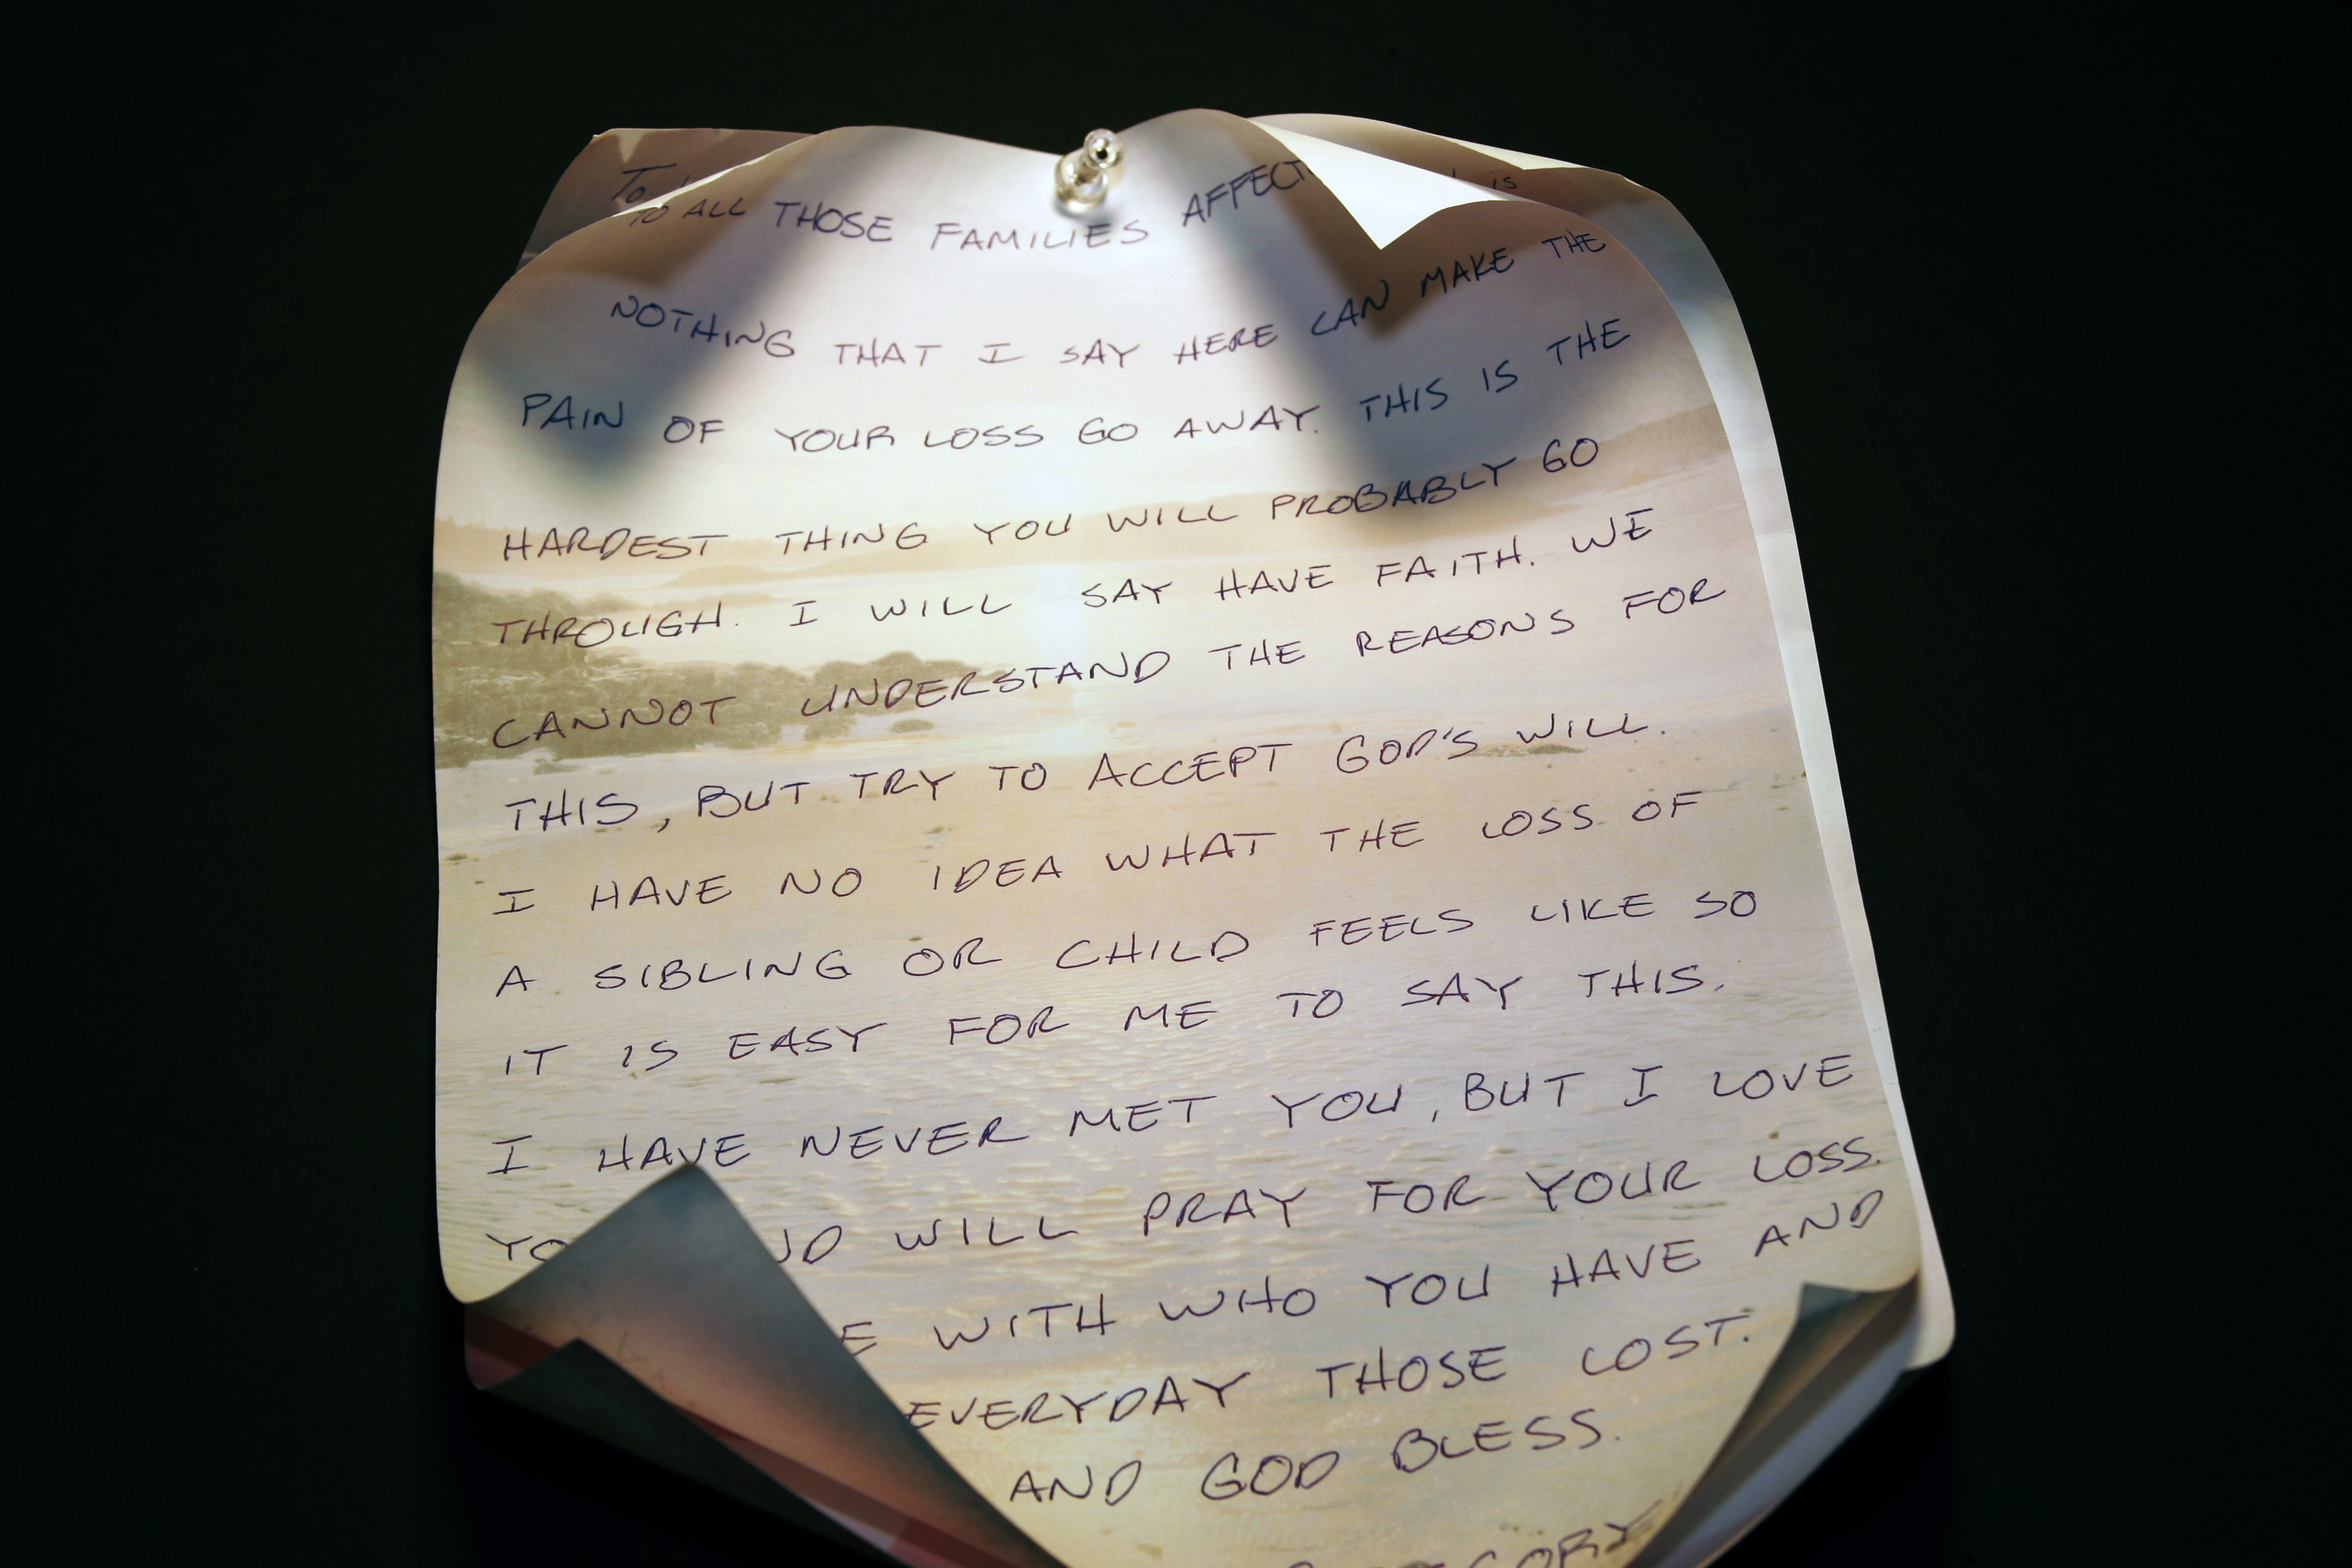 To
TO ALL THOSE FAMILIES AFFECT
IS
NOTHING THAT I SAY HERE CAN MAKE THE
PAIN OF YOUR LOSS GO AWAY. THIS IS THE
HARDEST THING YOU WILL PROBABLY GO
THROUGH. I WILL SAY HAVE FAITH. WE
CANNOT UNDERSTAND THE REASONS FOR
THIS, BUT TRY TO ACCEPT GOD'S WILL.
I HAVE NO IDEA WHAT THE LOSS OF
A SIBLING OR CHILD FEELS LIKE SO
IT IS EASY FOR ME TO SAY THIS.
I HAVE NEVER MET YOU, BUT I LOVE
WILL PRAY FOR YOUR LOSS.
WITH WHO YOU HAVE AND
EVERYDAY THOSE LOST.
AND GOD BLESS.